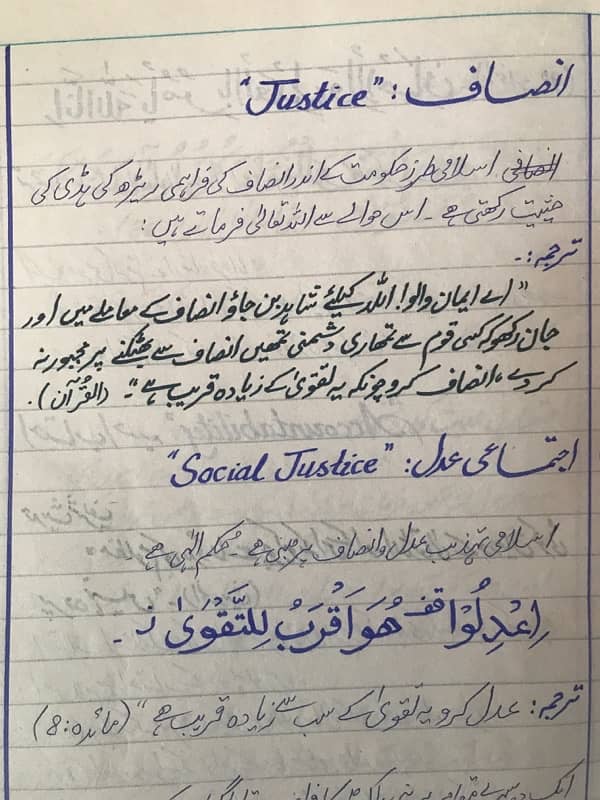 انصاف: "Justice"
اسلامی طرز حکومت کے اندر انصاف کی فراہمی ریڑھ کی ہڈی کی
حیثیت رکھتی ہے۔ اس حوالے سے اللہ تعالیٰ فرماتے ہیں:
ترجمہ:۔
"اے ایمان والو! اللہ کیلئے شاہد بن جاؤ انصاف کے معاملے میں اور
جان رکھو کہ کسی قوم سے تمھاری دشمنی تمھیں انصاف سے بھٹکنے پر مجبور نہ
کر دے، انصاف کرو چونکہ یہ تقویٰ کے زیادہ قریب ہے"۔ (القُرآن).
اجتماعی عدل: "Social Justice"
اسلامی تہذیب عدل و انصاف پر مبنی ہے۔ حُکم الٰہی ہے
اِعْدِلُوْا قف هُوَ اَقْرَبُ لِلتَّقْوٰى ز۔
ترجمہ: عدل کرو یہ تقویٰ کے سب سے زیادہ قریب ہے" (مائدہ 8:5)